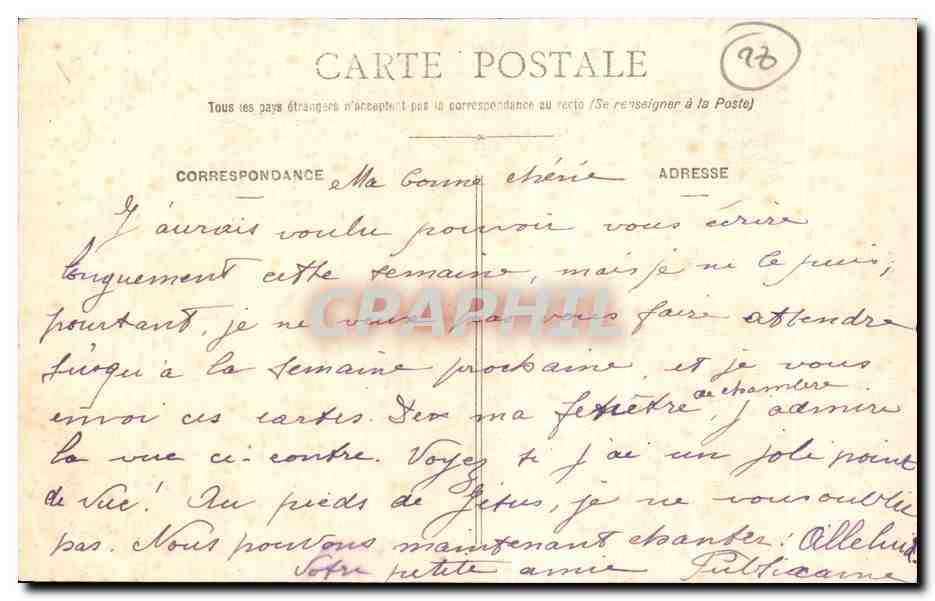 CARTE POSTALE
28
Tous les pays étrangers n'acceptent pas la correspondance au recto (Se renseigner à la Poste)
CORRESPONDANCE Ma bonne chérie ADRESSE
J'aurais voulu pouvoir vous écrire
longuement cette semaine, mais je ne le puis;
pourtant, je ne veux pas vous faire attendre
jusqu'à la semaine prochaine, et je vous
envoi ces cartes. De ma fenêtre de chambre, j'admire
la vue ci-contre. Voyez si j'ai un joli point
de vue! Au pieds de Jésus, je ne vous oublie
pas. Nous pouvons maintenant chanter: Alleluia.
Votre petite amie
CPAPHIL